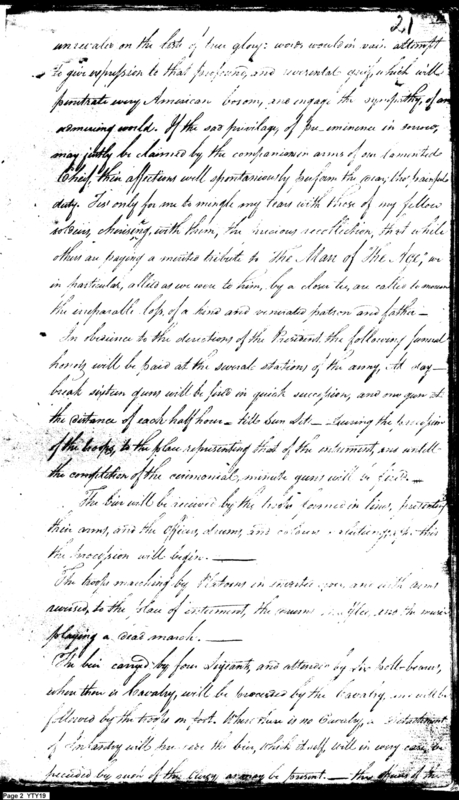 21
unrivaled on the lists of true glory: words would in vain attempt
to give expression to that profound, and reverental grief, which will
penetrate every American bosom, and engage the sympathy, of an
admiring world. If the sad privilage, of pre-eminence in sorrow,
may justly be claimed by the companions in arms of our lamented
Chief, their affections will spontaniously perform the dear, tho' painful
duty. Tis only for me to mingle my tears with those of my fellow
soldiers, cherising, with them, the precious recollection, that while
others are paying a merited tribute to "The Man of the Age", we
in particular, allied as we were to him, by a closer tie, are called to mourn
the irreparable loss, of a kind and venerated patron and father—
In obedience to the directions of the President, the following funeral
honors will be paid at the several stations of the army. At day—
break sixteen guns will be fired in quick succession, and one gun at
the distance of each half hour— till Sun Set— During the procession
of the troops, to the place representing that of the interment, and untill
the completion of the ceremonial, minute guns will be fired—
The bier will be received by the troops formed in line, presenting
their arms, and the Officers, drums, and colours saluting; after this
the procession will begin.—
The troops marching by Platoons in inverted order, and with arms
reversed, to the place of interment, the drums muffled, and the music
playing a dead march.—
The bier carryed by four Serjeants, and attended by six pall-bearers,
when there is Cavalry, will be preceeded by the Cavalry, and will be
followed by the troops on foot. Where there is no Cavalry, a Detachment
of Infantry will precede the bier, which itself, will in every case, be
preceeded by such of the Clergy as may be present.— The officers of the
Page 2 YTY19